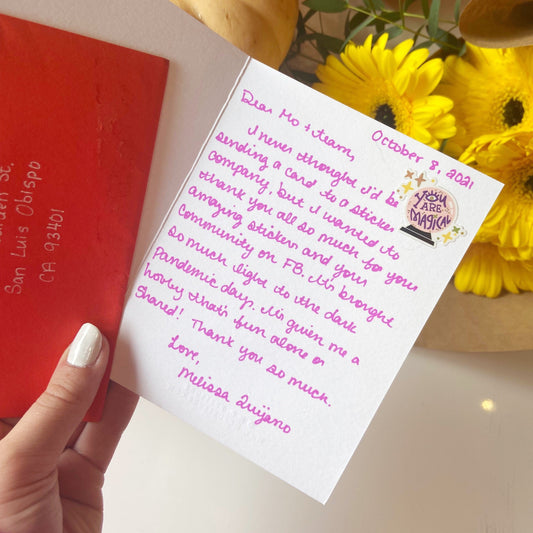 October 8, 2021
Dear Mo + team,
I never thought I'd be
sending a card to a sticker
company, but I wanted to
thank you all so much for your
amazing stickers and your
community on FB. It's brought
so much light to the dark
pandemic days. It's given me a
hobby that's fun alone or
shared! Thank you so much.
Love,
Melissa Quijano
YOU
ARE
MAGICAL
St.
San Luis Obispo
CA 93401